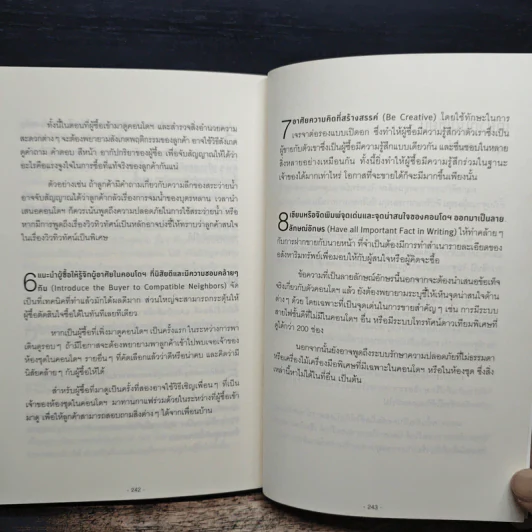 ทั้งนี้ในตอนที่ผู้ซื้อเข้ามาดูคอนโดฯ และสำรวจสิ่งอำนวยความ
สะดวกต่างๆ จะต้องพยายามสังเกตพฤติกรรมของลูกค้า อาจใช้วิธีสังเกต
ดูคำถาม คำตอบ สีหน้า อากัปกิริยาของผู้ซื้อ เพื่อจับสัญญาณให้ได้ว่า
อะไรคือแรงจูงใจในการซื้อที่แท้จริงของลูกค้ากันแน่
ตัวอย่างเช่น ถ้าลูกค้ามีคำถามเกี่ยวกับความลึกของสระว่ายน้ำ
อาจจับสัญญาณได้ว่าลูกค้ากลัวเรื่องการจมน้ำของบุตรหลาน เวลานำ
เสนอคอนโดฯ ก็ควรเน้นพูดถึงความปลอดภัยในการใช้สระว่ายน้ำ หรือ
หากมีการพูดถึงเรื่องวิวทิวทัศน์เป็นหลักอาจบ่งชี้ให้ทราบว่าลูกค้าสนใจ
ในเรื่องวิวทิวทัศน์เป็นพิเศษ
6 แนะนำผู้ซื้อให้รู้จักผู้อาศัยในคอนโดฯ ที่มีนิสัยดีและมีความชอบคล้ายๆ
กัน (Introduce the Buyer to Compatible Neighbors) จัด
เป็นที่เทคนิคที่ทำแล้วมักได้ผลดีมาก ส่วนใหญ่จะสามารถกระตุ้นให้
ผู้ซื้อตัดสินใจซื้อได้ในทันทีเลยทีเดียว
หากเป็นผู้ซื้อที่เพิ่งมาดูคอนโดฯ เป็นครั้งแรก ในระหว่างการพา
เดินดูรอบๆ ถ้ามีโอกาสจะต้องพยายามพาลูกค้าเข้าไปพบเจอเจ้าของ
ห้องชุดในคอนโดฯ รายอื่นๆ ที่คัดเลือกแล้วว่าดีหรือน่าคบ และคิดว่ามี
นิสัยคล้ายๆ กับผู้ซื้อให้ได้
สำหรับผู้ซื้อที่มาดูเป็นครั้งที่สองอาจใช้วิธีเชิญเพื่อนๆ ที่เป็น
เจ้าของห้องชุดในคอนโดฯ มาทานกาแฟร่วมด้วยในระหว่างที่ผู้ซื้อเข้า
มาดู เพื่อให้ลูกค้าสามารถสอบถามสิ่งต่างๆ ได้จากเพื่อนบ้าน
- 242 -
7 อาศัยความคิดที่สร้างสรรค์ (Be Creative) โดยใช้ทักษะในการ
เจรจาต่อรองแบบเปิดออก ซึ่งทำให้ผู้ซื้อมีความรู้สึกว่าตัวเราซึ่งเป็น
ผู้ขายกับตัวเขาซึ่งเป็นผู้ซื้อมีความรู้สึกแบบเดียวกัน และชื่นชอบในหลาย
สิ่งหลายอย่างเหมือนกัน ทั้งนี้ยิ่งทำให้ผู้ซื้อมีความรู้สึกร่วมในฐานะ
เจ้าของได้มากเท่าไหร่ โอกาสที่จะขายได้ก็จะมีมากขึ้นเพียงนั้น
8 เขียนหรือจัดพิมพ์จุดเด่นและจุดน่าสนใจของคอนโดฯ ออกมาเป็นลาย
ลักษณ์อักษร (Have all Important Fact in Writing) ให้ทำคล้ายๆ
กับการฝากขายกับนายหน้า ที่จำเป็นต้องมีการทำสำเนารายละเอียดของ
อสังหาริมทรัพย์เพื่อมอบให้กับผู้สนใจหรือผู้คิดจะซื้อ
ข้อความที่เป็นลายลักษณ์อักษรนี้นอกจากจะต้องนำเสนอข้อเท็จ
จริงเกี่ยวกับตัวคอนโดฯ แล้ว ยังต้องพยายามระบุชี้ให้เห็นจุดน่าสนใจด้าน
ต่างๆ ด้วย โดยเฉพาะที่เป็นจุดเด่นในการขายสำคัญๆ เช่น การมีระบบ
สายไฟรั่วที่ไม่มีในคอนโดฯ อื่น หรือมีระบบโทรทัศน์ดาวเทียมพิเศษที่
ดูได้กว่า 200 ช่อง
นอกจากนั้นยังอาจพูดถึงระบบรักษาความปลอดภัยที่ไม่ธรรมดา
หรือเครื่องไม้เครื่องมือพิเศษที่มีเฉพาะในคอนโดฯ หรือในห้องชุด ซึ่งสิ่ง
เหล่านี้หาไม่ได้ในที่อื่น เป็นต้น
- 243 -